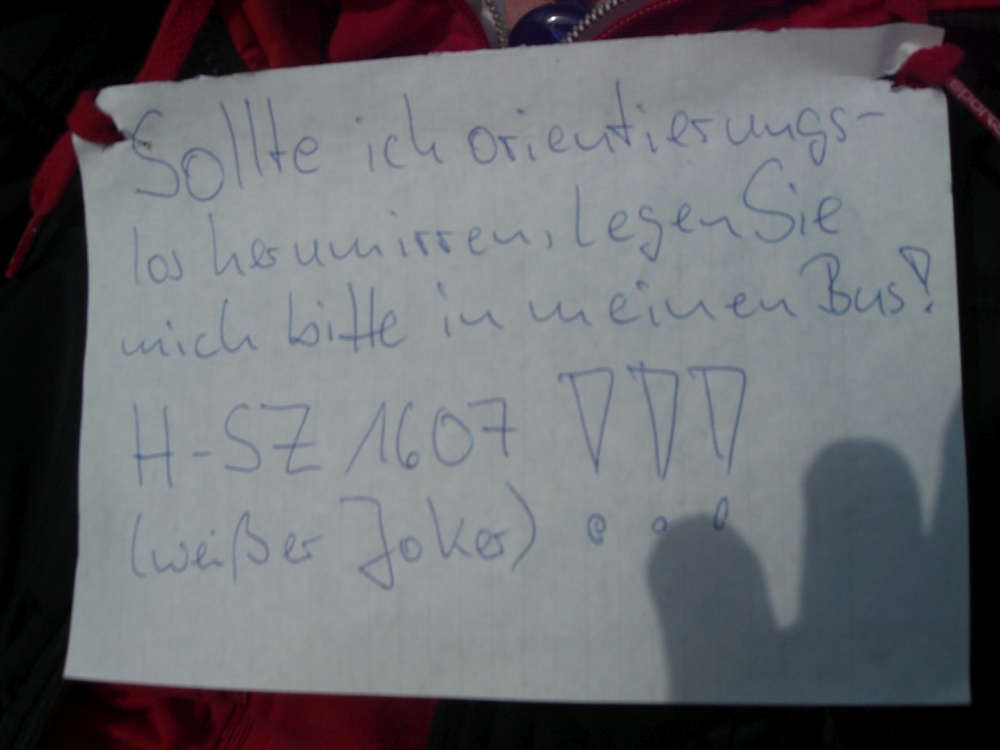 Sollte ich orientierungs-
los herumirren, legen Sie
mich bitte in meinen Bus!
H-SZ 1607 !!!
(weißer Joker)